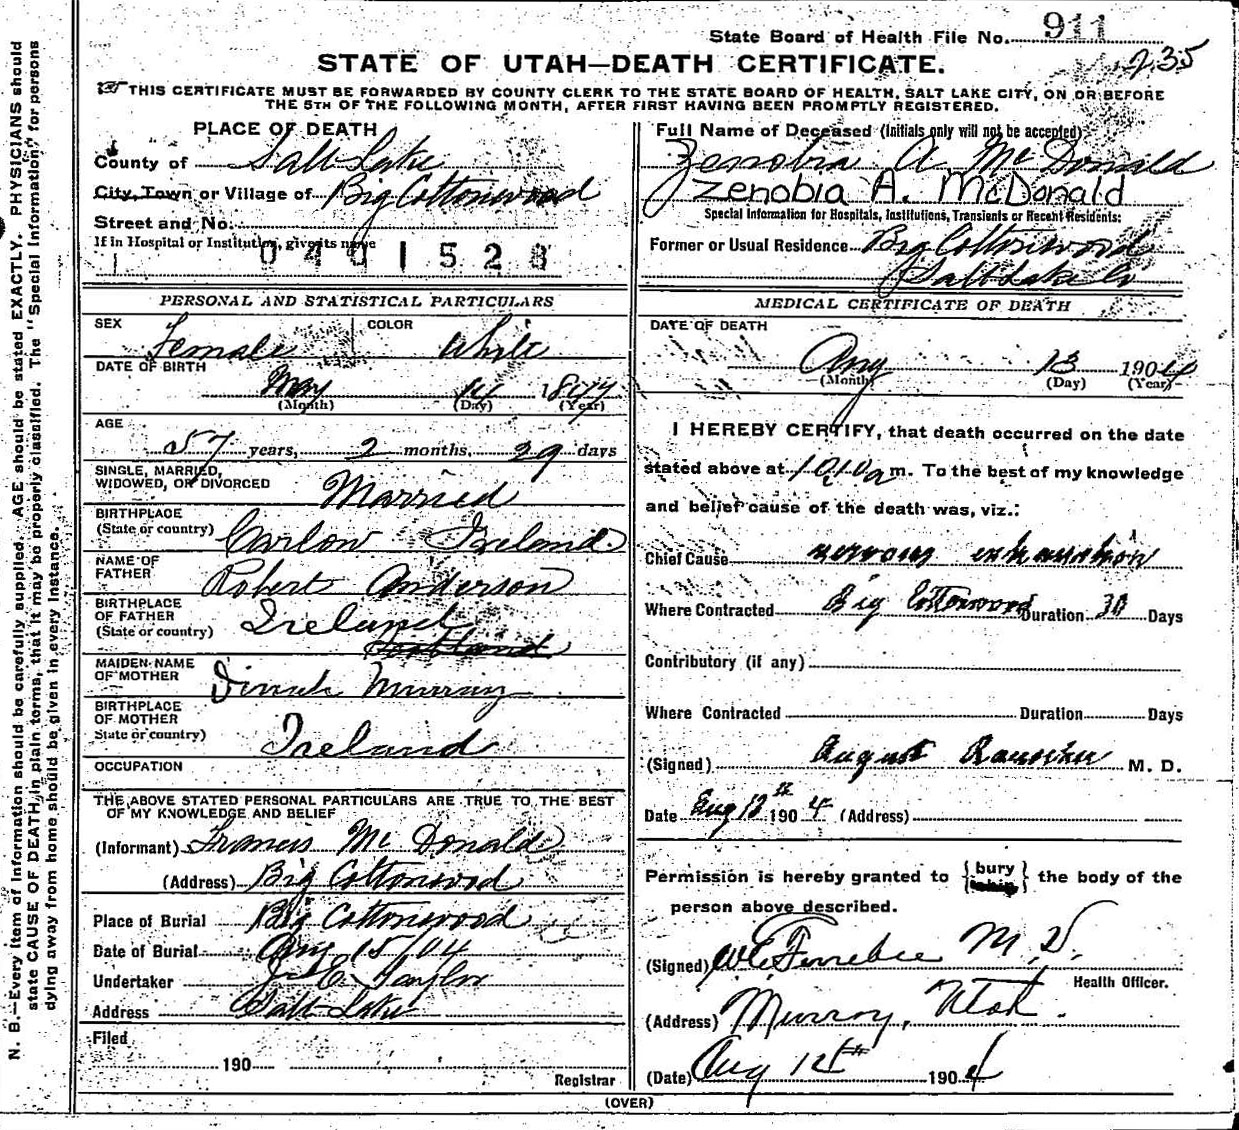 State Board of Health File No. 911
235
STATE OF UTAH—DEATH CERTIFICATE.
THIS CERTIFICATE MUST BE FORWARDED BY COUNTY CLERK TO THE STATE BOARD OF HEALTH, SALT LAKE CITY, ON OR BEFORE
THE 5TH OF THE FOLLOWING MONTH, AFTER FIRST HAVING BEEN PROMPTLY REGISTERED.
PLACE OF DEATH
County of Salt Lake
City, Town or Village of Big Cottonwood
Street and No.
If in Hospital or Institution, give its name
0401528
PERSONAL AND STATISTICAL PARTICULARS
SEX Female COLOR White
DATE OF BIRTH
May 14 1847
(Month) (Day) (Year)
AGE
57 years, 2 months, 29 days
SINGLE, MARRIED,
WIDOWED, OR DIVORCED Married
BIRTHPLACE
(State or country) Carlow Ireland
NAME OF
FATHER Robert Anderson
BIRTHPLACE
OF FATHER
(State or country) Ireland
Scotland
MAIDEN NAME
OF MOTHER Dinah Murray
BIRTHPLACE
OF MOTHER
State or country) Ireland
OCCUPATION
THE ABOVE STATED PERSONAL PARTICULARS ARE TRUE TO THE BEST
OF MY KNOWLEDGE AND BELIEF
(Informant) Francis Mc Donald
(Address) Big Cottonwood
Place of Burial Big Cottonwood
Date of Burial Aug 15/04
Undertaker E. Taylor
Address Salt Lake
Filed
190
Registrar
Full Name of Deceased (Initials only will not be accepted)
Zenobia A Mc Donald
Zenobia A. McDonald
Special Information for Hospitals, Institutions, Transients or Recent Residents:
Former or Usual Residence Big Cottonwood
Salt Lake Co
MEDICAL CERTIFICATE OF DEATH
DATE OF DEATH
Aug 13 1904
(Month) (Day) (Year)
I HEREBY CERTIFY, that death occurred on the date
stated above at 10 10 a m. To the best of my knowledge
and belief cause of the death was, viz.:
Chief Cause nervous exhaustion
Where Contracted Big Cottonwood Duration 30 Days
Contributory (if any)
Where Contracted Duration Days
(Signed) August M. D.
Date Aug 13th 1904 (Address)
Permission is hereby granted to {bury ship} the body of the
person above described.
(Signed) M. D.
Health Officer.
(Address) Murray, Utah.
(Date) Aug 12th 1904
(OVER)
N. B.—Every item of information should be carefully supplied. AGE should be stated EXACTLY. PHYSICIANS should
state CAUSE OF DEATH in plain terms, that it may be properly classified. The "Special Information" for persons
dying away from home should be given in every instance.